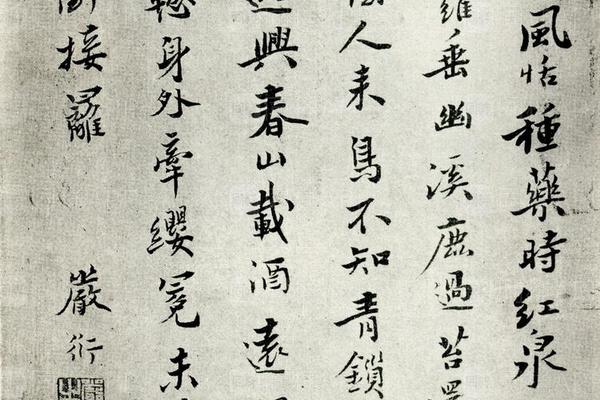 風恬種藥時紅泉
蘿垂幽溪鹿過苔還
人來鳥不知青鎖
逸興春山載酒遠
慙身外牽纓冕未
倒接䍦
嚴衍